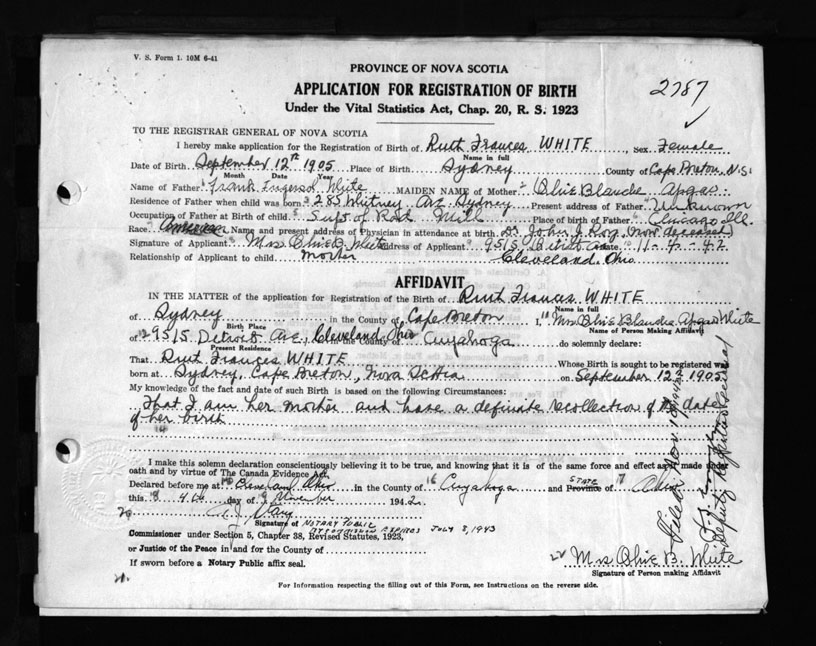 V. S. Form 1. 10M 6-41
PROVINCE OF NOVA SCOTIA
APPLICATION FOR REGISTRATION OF BIRTH
2787
Under the Vital Statistics Act, Chap. 20, R. S. 1923
TO THE REGISTRAR GENERAL OF NOVA SCOTIA
I hereby make application for the Registration of Birth of Ruth Frances WHITE, Sex Female
Name in full
Date of Birth September 12th 1905 Place of Birth Sydney County of Cape Breton, N.S.
Month Date Year
Name of Father Frank Ingersol White MAIDEN NAME of Mother Olive Blanche Apgar
Residence of Father when child was born 285 Whitney Av. Sydney Present address of Father Unknown
Occupation of Father at Birth of child Supt of Rod Mill Place of birth of Father Chicago Ill.
Race American Name and present address of Physician in attendance at birth Dr. John J. Roy, (now deceased)
Signature of Applicant Mrs Olive B. White Address of Applicant 9515 Detroit Ave Date 11-4-42
Relationship of Applicant to child mother Cleveland, Ohio.
AFFIDAVIT
IN THE MATTER of the application for Registration of the Birth of Ruth Frances WHITE
Name in full
of Sydney in the County of Cape Breton I, Mrs Olive Blanche Apgar White
Birth Place Name of Person Making Affidavit
of 9515 Detroit Ave, Cleveland Ohio in the County of Cuyahoga do solemnly declare:
Present Residence
That Ruth Frances WHITE Whose Birth is sought to be registered was
born at Sydney, Cape Breton, Nova Scotia on September 12 1905
My knowledge of the fact and date of such Birth is based on the following Circumstances:
That I am her mother and have a definate recollection of the date
of her birth
I make this solemn declaration conscientiously believing it to be true, and knowing that it is of the same force and effect as if made under
oath and by virtue of The Canada Evidence Act.
Declared before me at Cleveland Ohio in the County of Cuyahoga and STATE Province of Ohio
this 4th day of November 1942
Signature of NOTARY PUBLIC
MY COMMISSION EXPIRES JULY 8, 1943
Commissioner under Section 5, Chapter 38, Revised Statutes, 1923,
or Justice of the Peace in and for the County of
If sworn before a Notary Public affix seal.
Mrs Olive B. White
Signature of Person making Affidavit
For Information respecting the filling out of this Form, see Instructions on the reverse side.
Deputy Registrar General